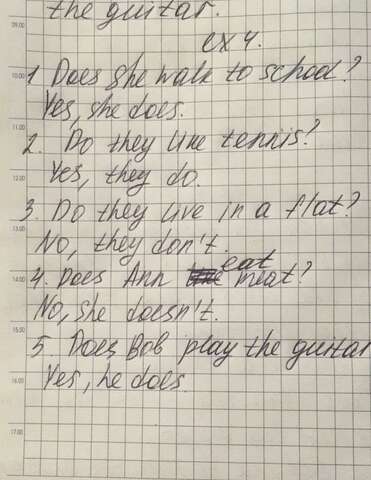 the guitar.
ex 4.
1 Does she walk to school?
Yes, she does.
2. Do they like tennis?
Yes, they do.
3. Do they live in a flat?
No, they don't.
4. Does Ann eat meat?
No, she doesn't.
5. Does Bob play the guitar
Yes, he does.
09.00
10.00
11.00
12.00
13.00
14.00
15.00
16.00
17.00